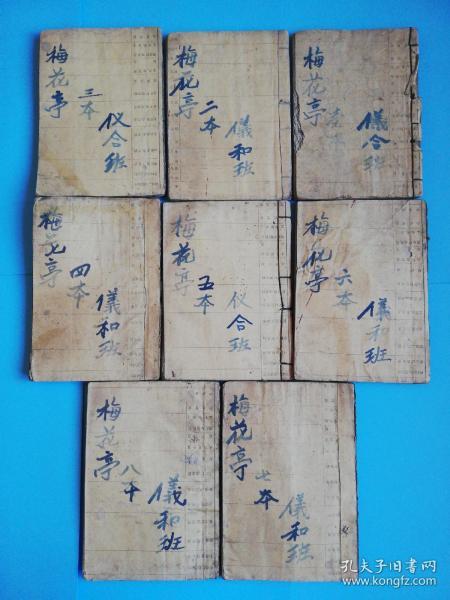 梅花亭
三本
仪合班
梅花亭
二本
儀和班
梅花亭
儀合班
梅花亭
四本
儀和班
梅花亭
五本
仪合班
梅花亭
六本
儀和班
梅花亭
八本
儀和班
梅花亭
七本
儀和班
孔夫子旧书网
www.kongfz.com